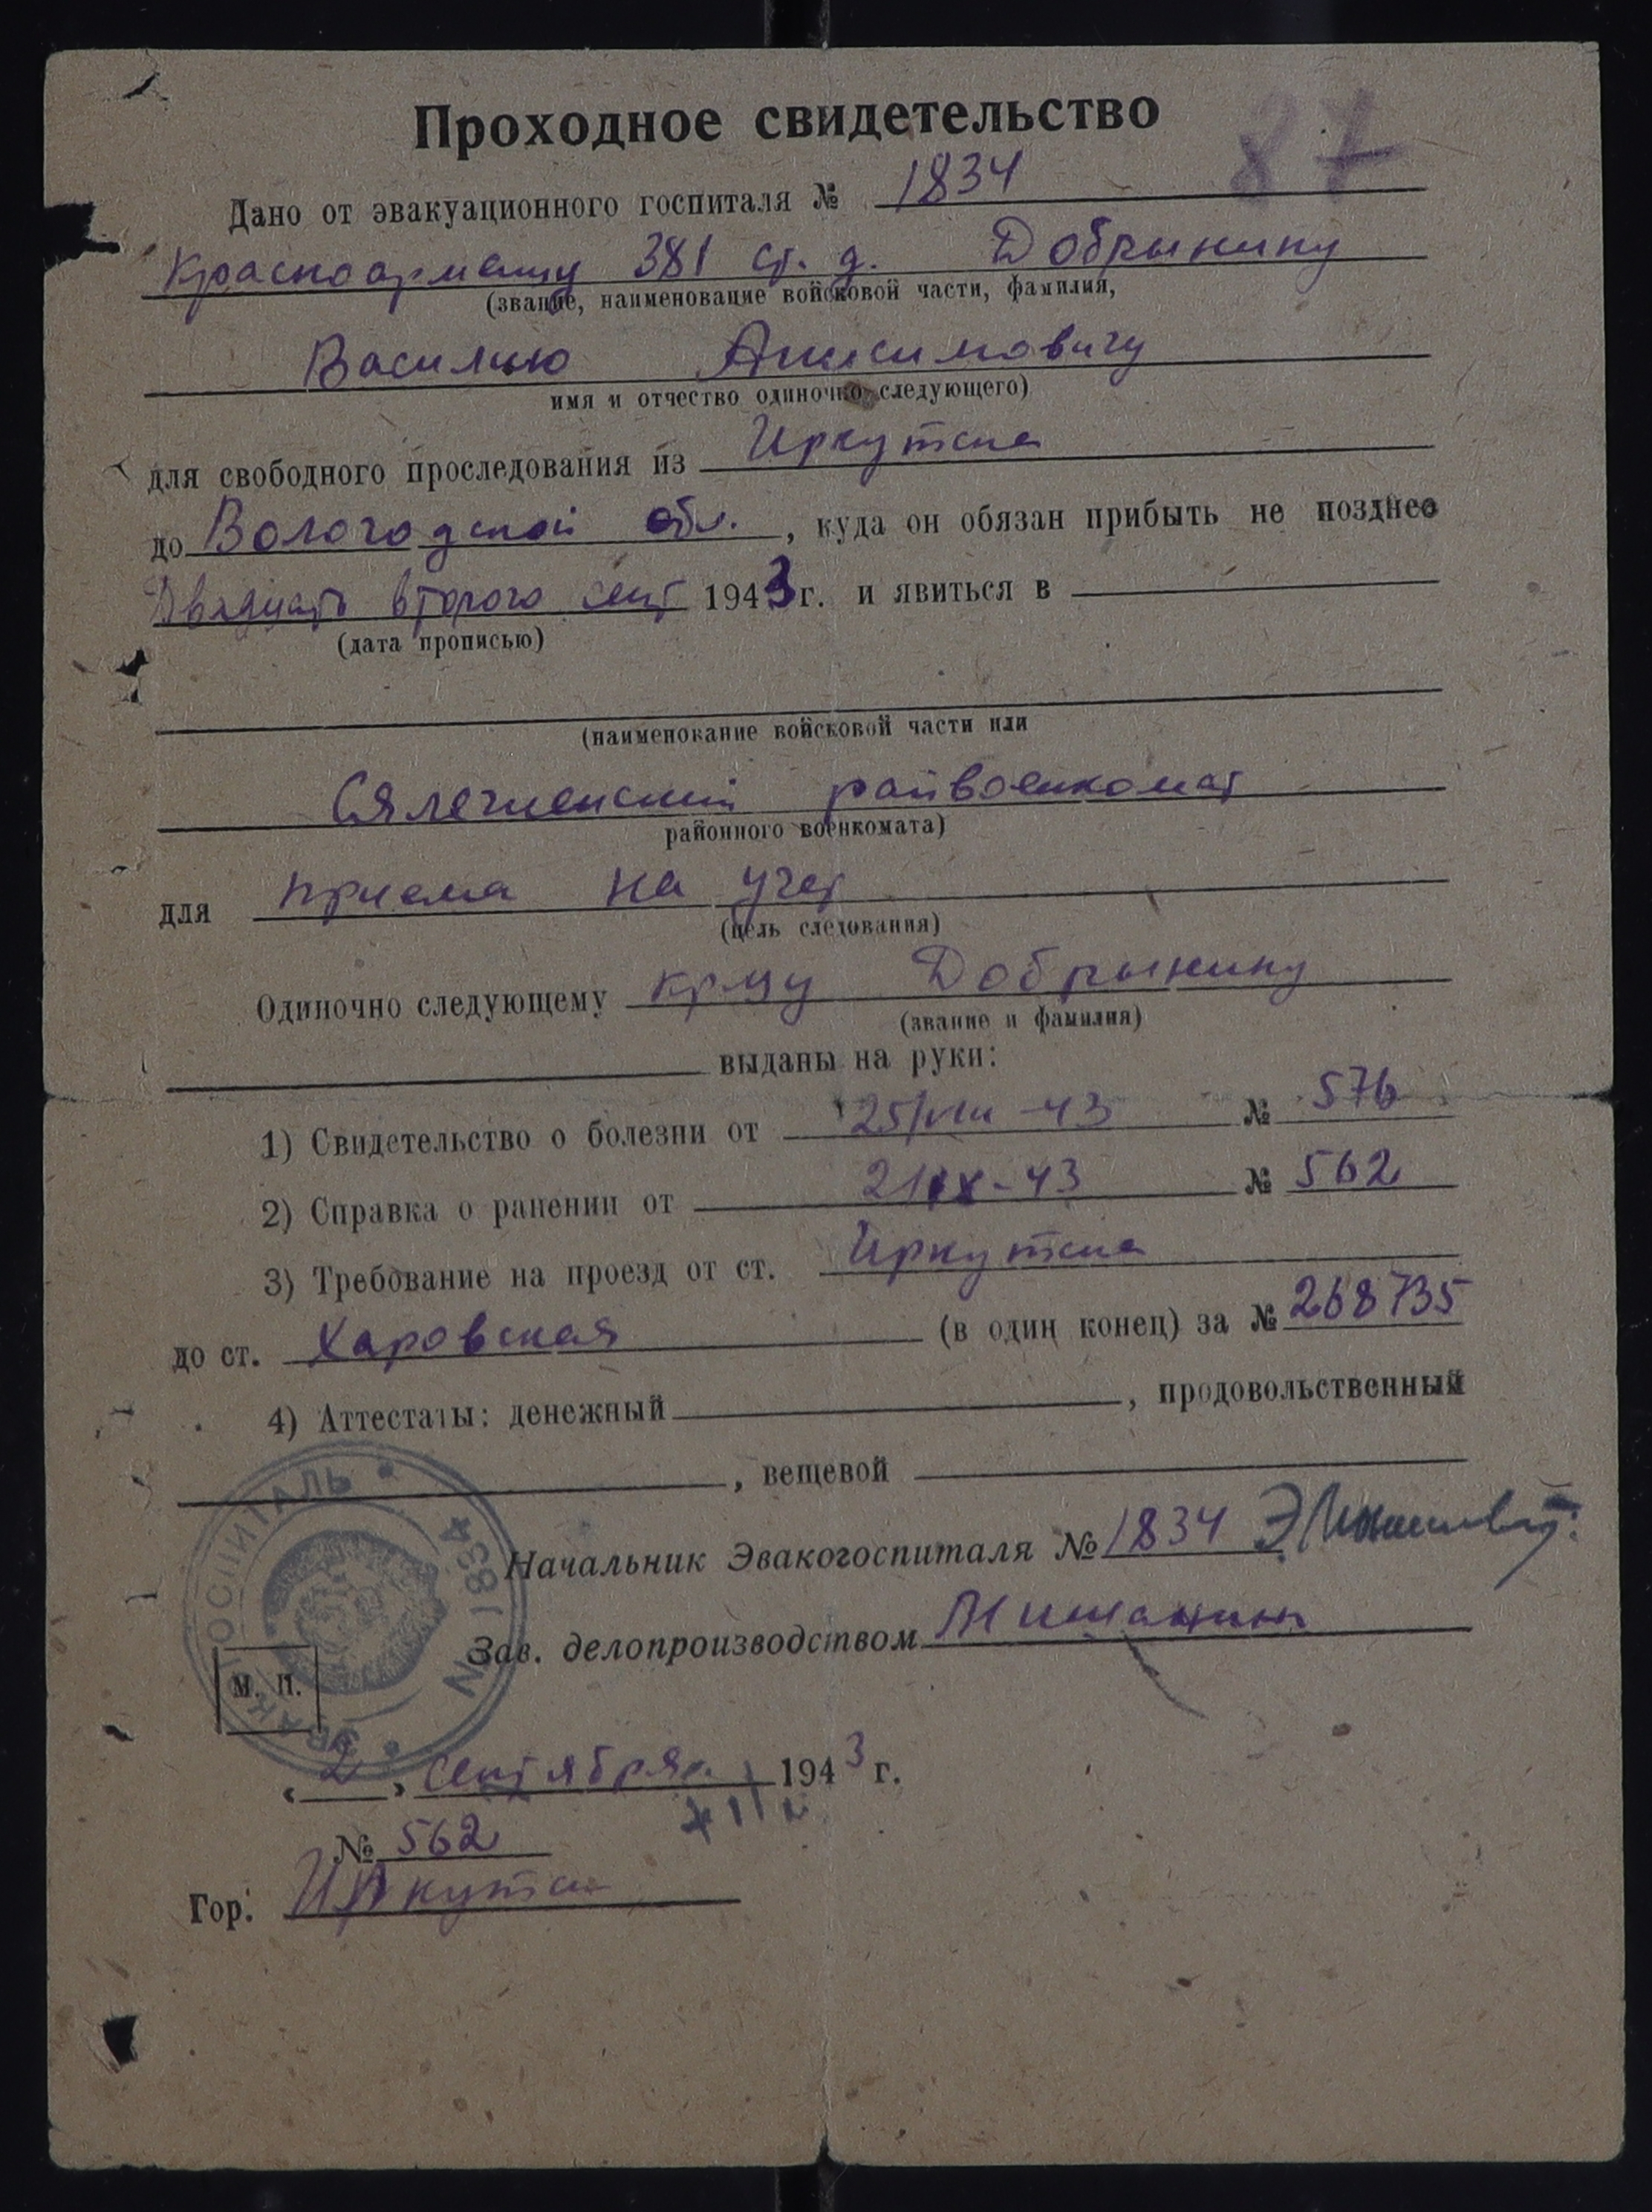 Проходное свидетельство
87
Дано от эвакуационного госпиталя № 1834
Красноармейцу 381 ст. д. Добрынину
(звание, наименование войсковой части, фамилия,
Василию Анисимовичу
имя и отчество одиночно следующего)
для свободного проследования из Иркутска
до Вологодской обл., куда он обязан прибыть не позднее
Двадцать второго сент 1943 г. и явиться в
(дата прописью)
(наименование войсковой части или
райвоенкомат
районного военкомата)
для приема на учет
(цель следования)
Одиночно следующему кр-му Добрынину
(звание и фамилия)
выданы на руки:
1) Свидетельство о болезни от 25/VIII-43 № 576
2) Справка о ранении от 2/IX-43 № 562
3) Требование на проезд от ст. Иркутска
до ст. Харовская (в один конец) за № 268735
4) Аттестаты: денежный , продовольственный
, вещевой
Начальник Эвакогоспиталя № 1834
Зав. делопроизводством
ЭВАКОГОСПИТАЛЬ № 1834
М. П.
„2„ сентября 1943 г.
№ 562
Гор. Иркутск